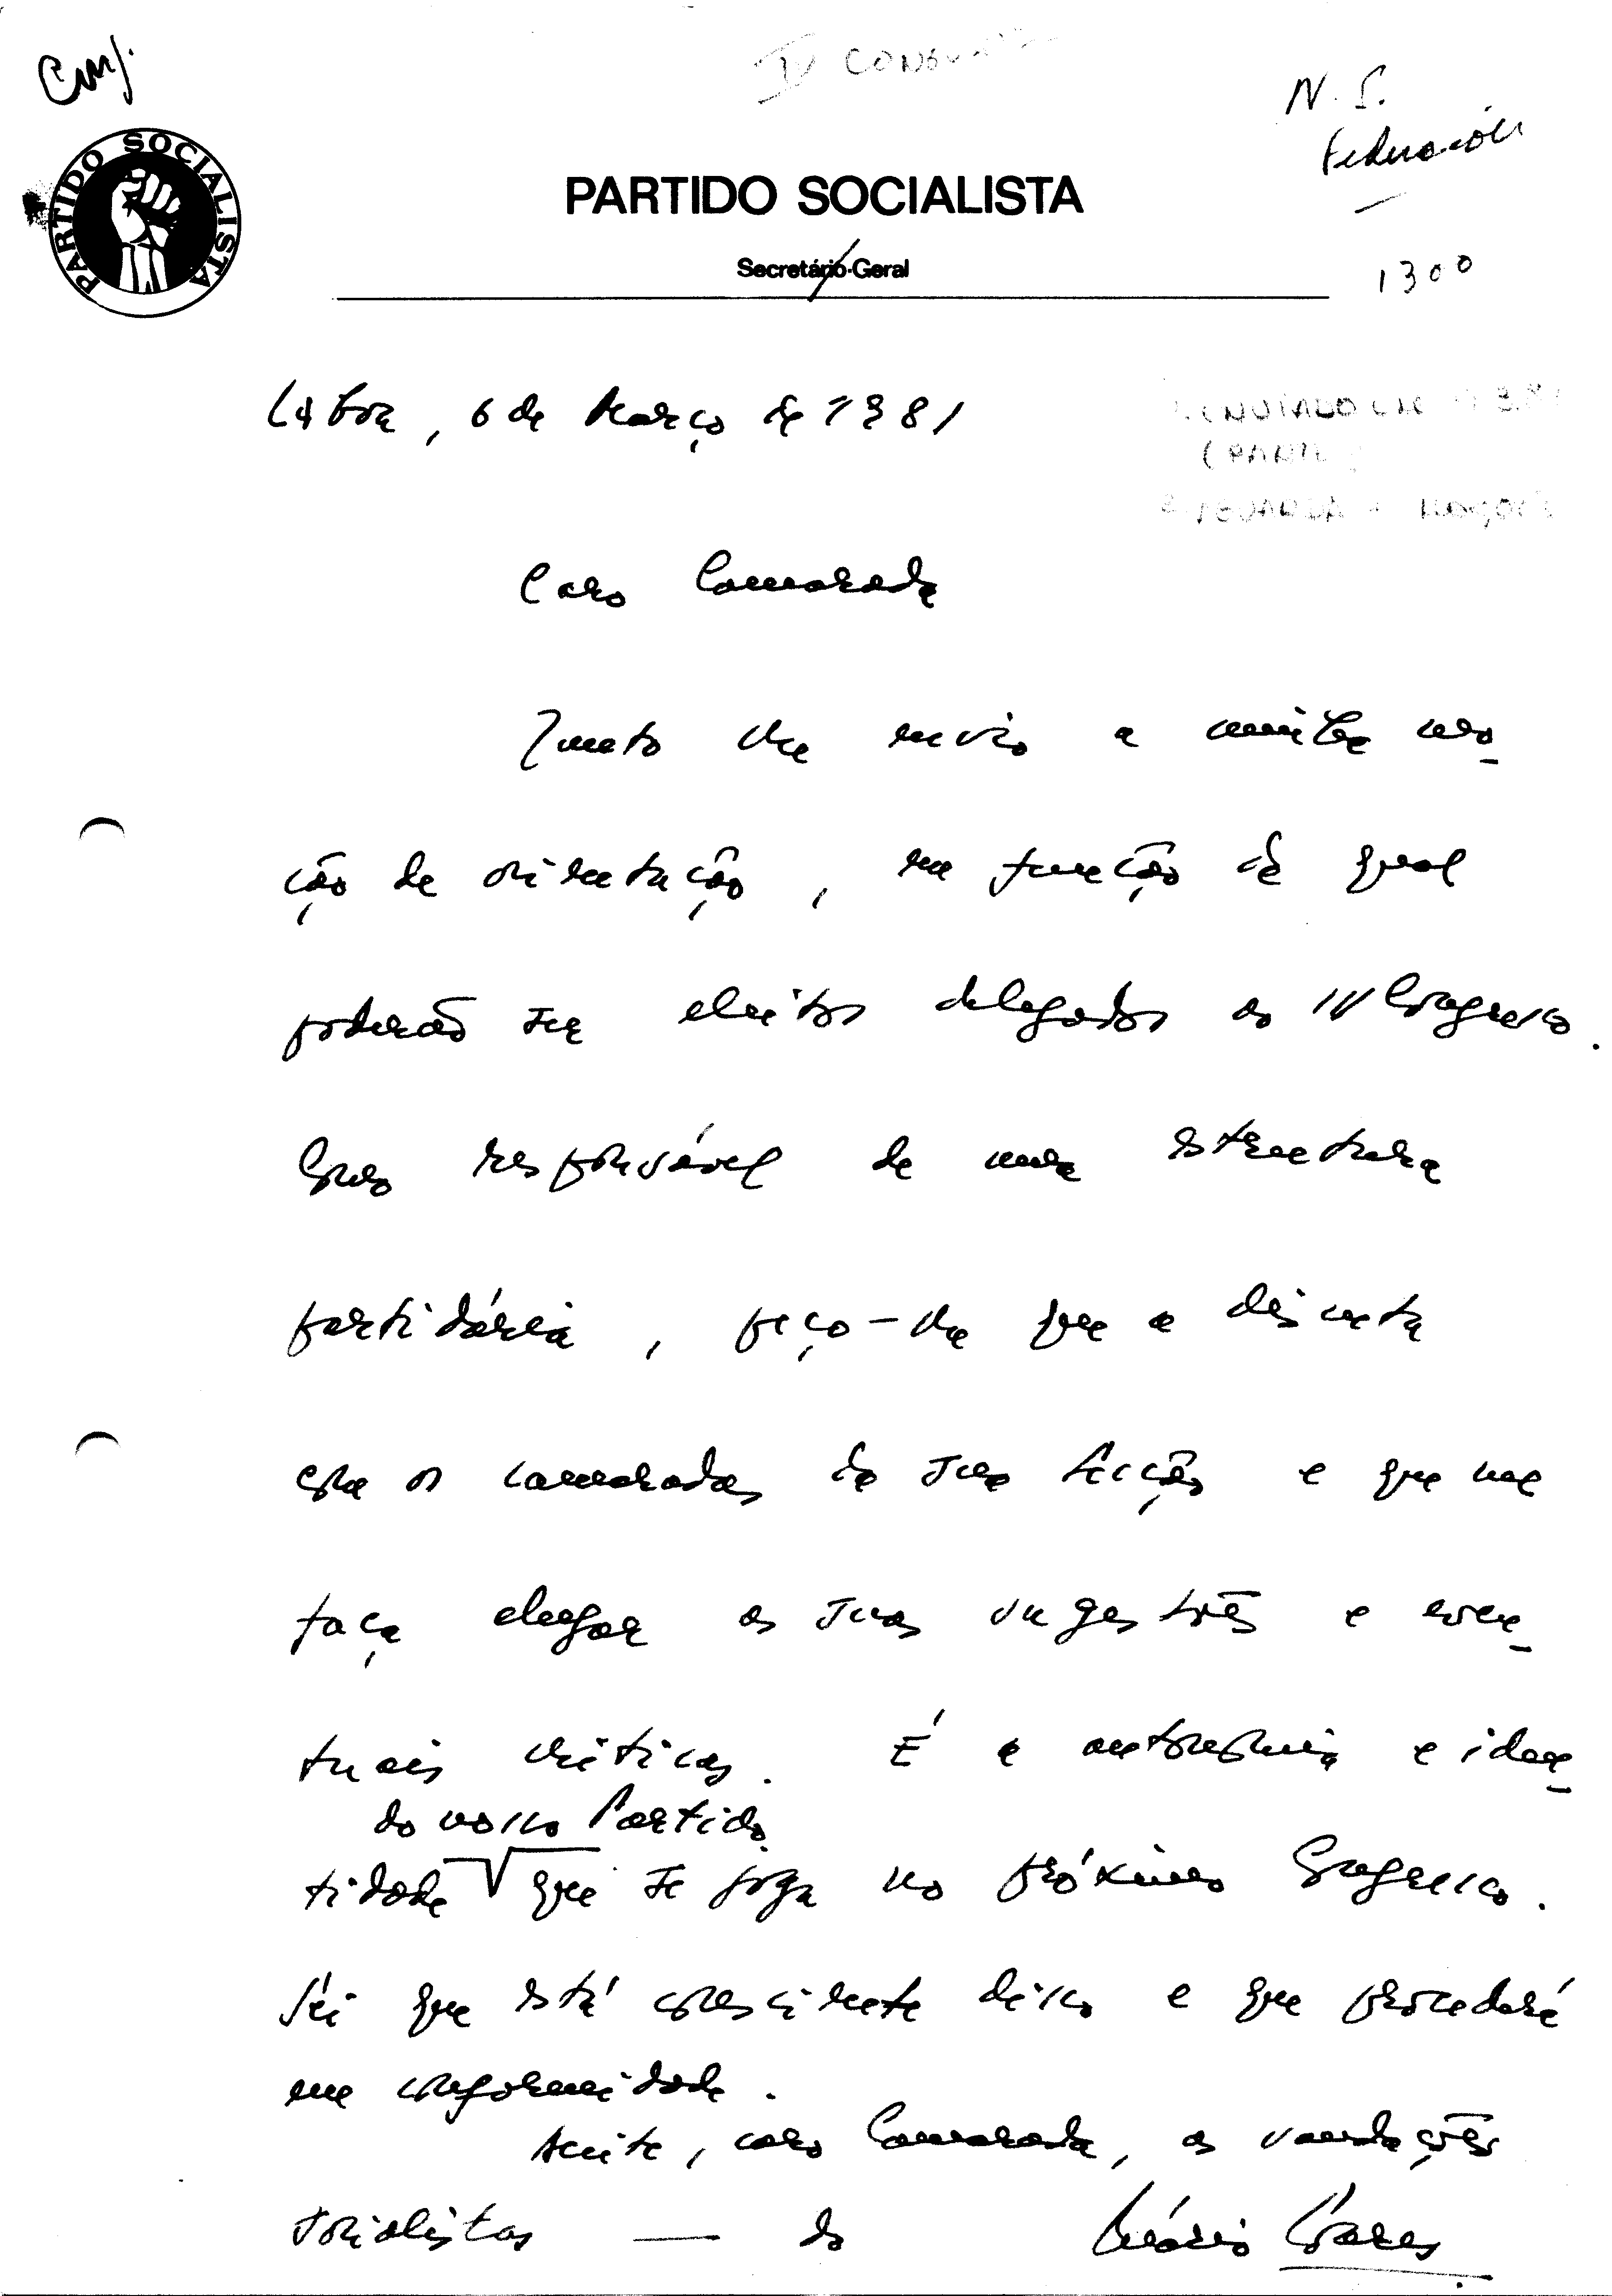 IV
N. S.
PARTIDO SOCIALISTA
PARTIDO SOCIALISTA
Secretário-Geral
1300
Lisboa, 6 de Março de 1981
Caro Camarada
Junto lhe envio a minha mo-
ção de orientação, em função da qual
poderão ser eleitos delegados ao IV Congresso.
Como responsável de uma estrutura
partidária, peço-lhe que a discuta
com os camaradas da sua Secção e que me
faça chegar as suas sugestões e even-
tuais críticas. É a autonomia e iden-
do nosso Partido
tidade que se joga no próximo Congresso.
Sei que está consciente disso e que procederá
em conformidade.
Aceite, caro Camarada, as saudações
socialistas — do Mário Soares